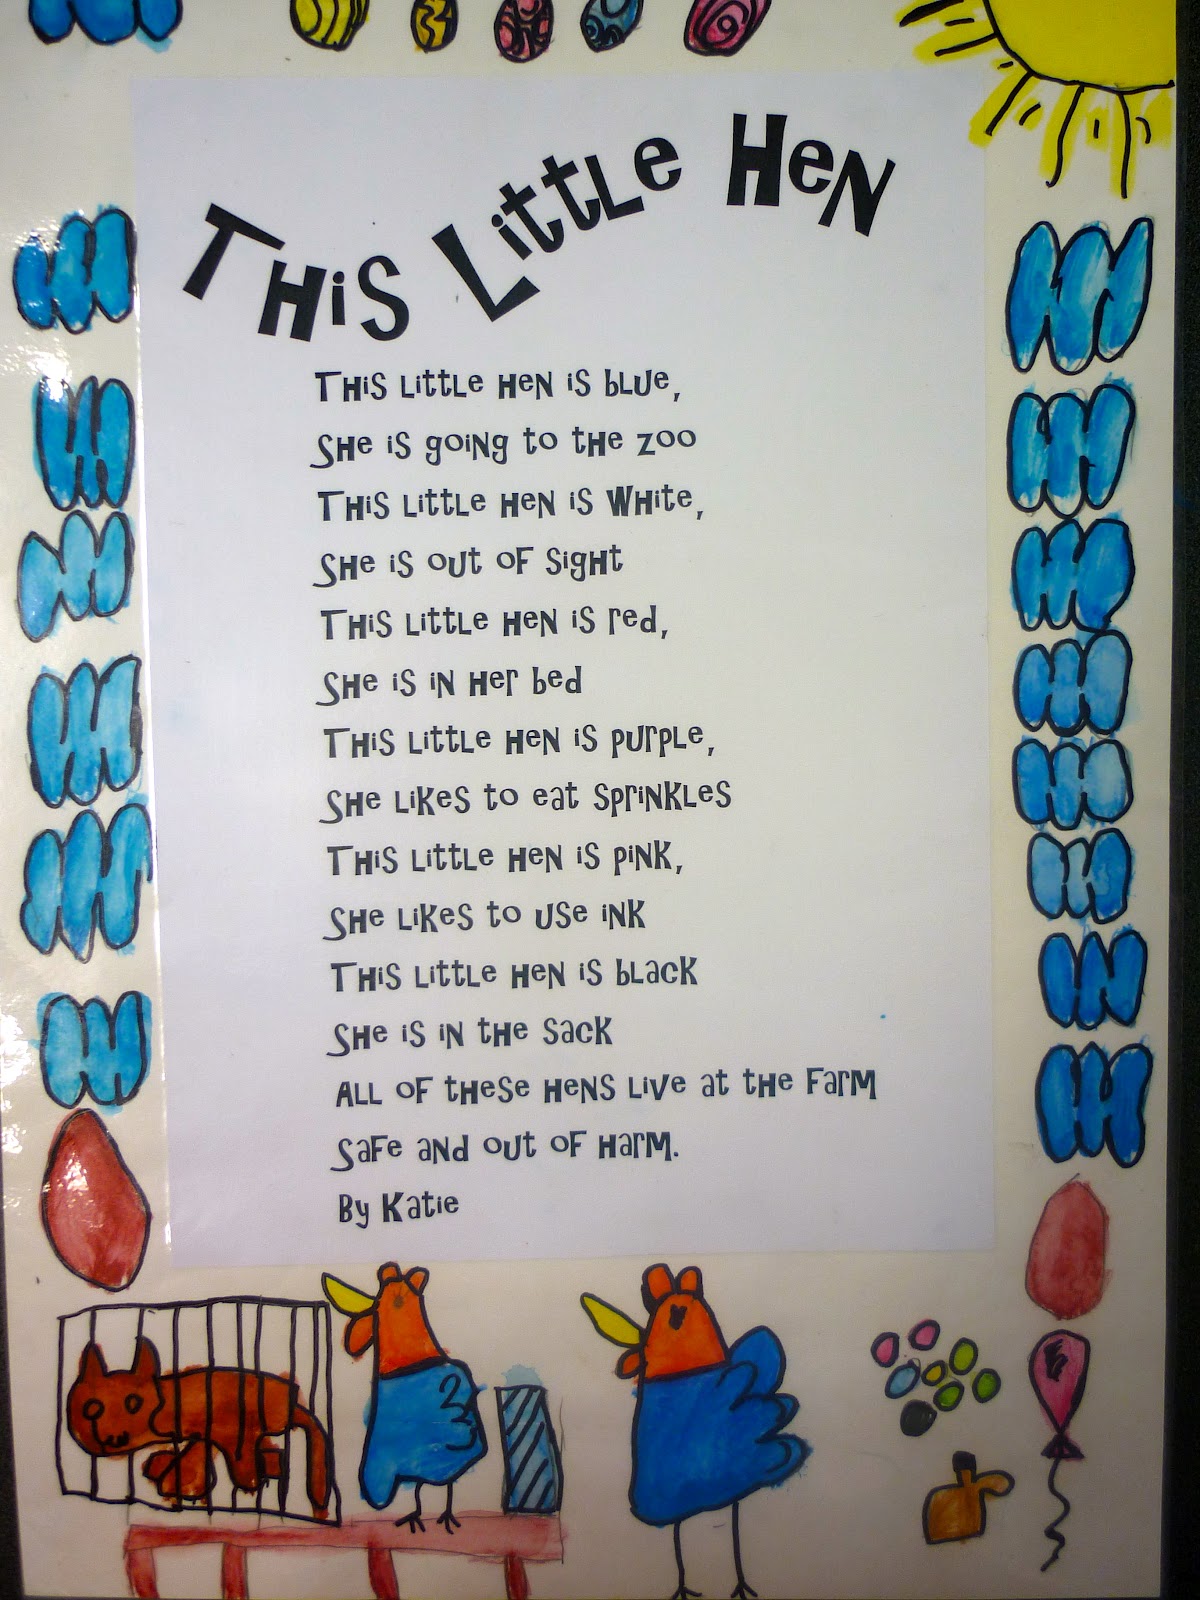 This Little Hen
This little hen is blue,
She is going to the zoo
This little hen is white,
She is out of sight
This little hen is red,
She is in her bed
This little hen is purple,
She likes to eat sprinkles
This little hen is pink,
She likes to use ink
This little hen is black
She is in the sack
All of these hens live at the farm
Safe and out of harm.
By Katie